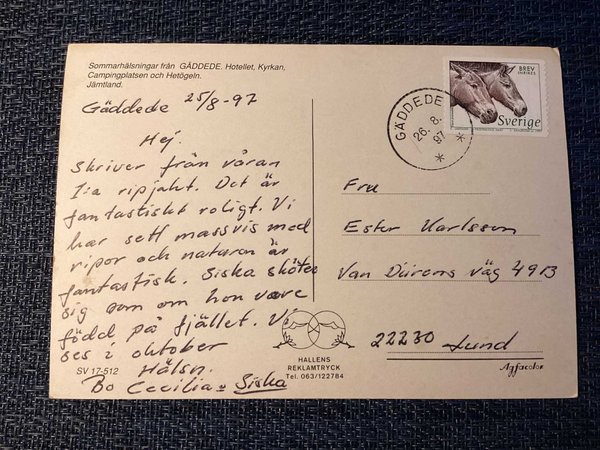 Sommarhälsningar från GÄDDEDE. Hotellet, Kyrkan,
Campingplatsen och Hetögeln.
Jämtland.
Gäddede 25/8-97
Hej.
Skriver från våran
1:a ripjakt. Det är
fantastiskt roligt. Vi
har sett massvis med
ripor och naturen är
fantastisk. Siska sköter
sig som om hon vore
född på fjället. Vi
ses i oktober
Hälsn.
Bo Cecilia o Siska
SV 17-512
HALLENS
REKLAMTRYCK
Tel. 063/122784
GÄDDEDE
26.8.
97
BREV
INRIKES
Sverige
Fru
Ester Karlsson
Van Dürens väg 49B
22230 Lund
Agfacolor